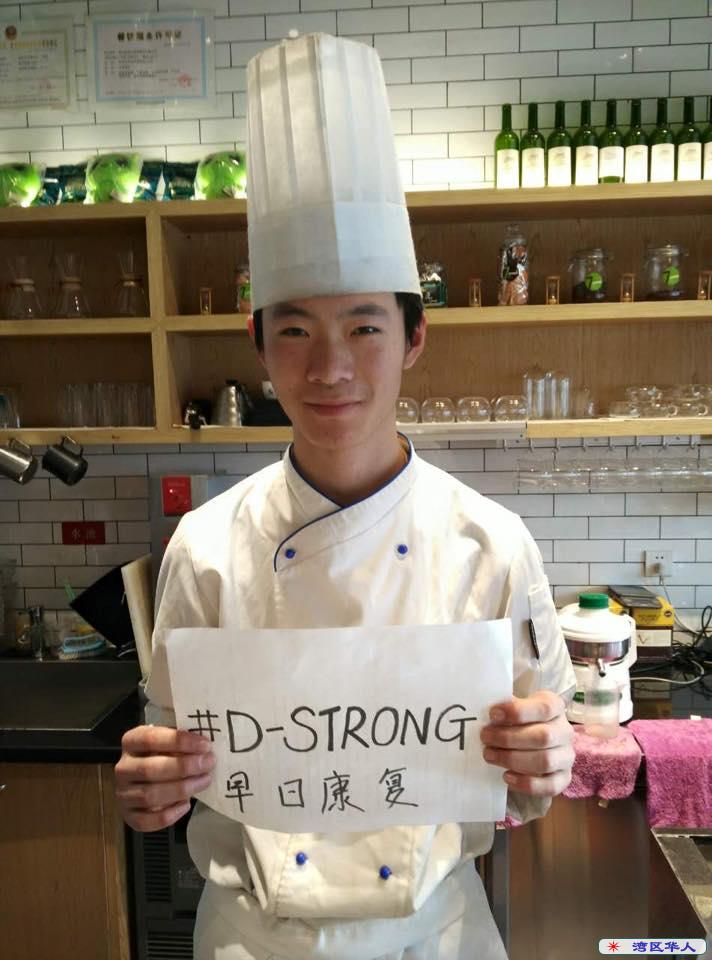 餐饮服务许可证
水池
#D-STRONG
早日康复
湾区华人